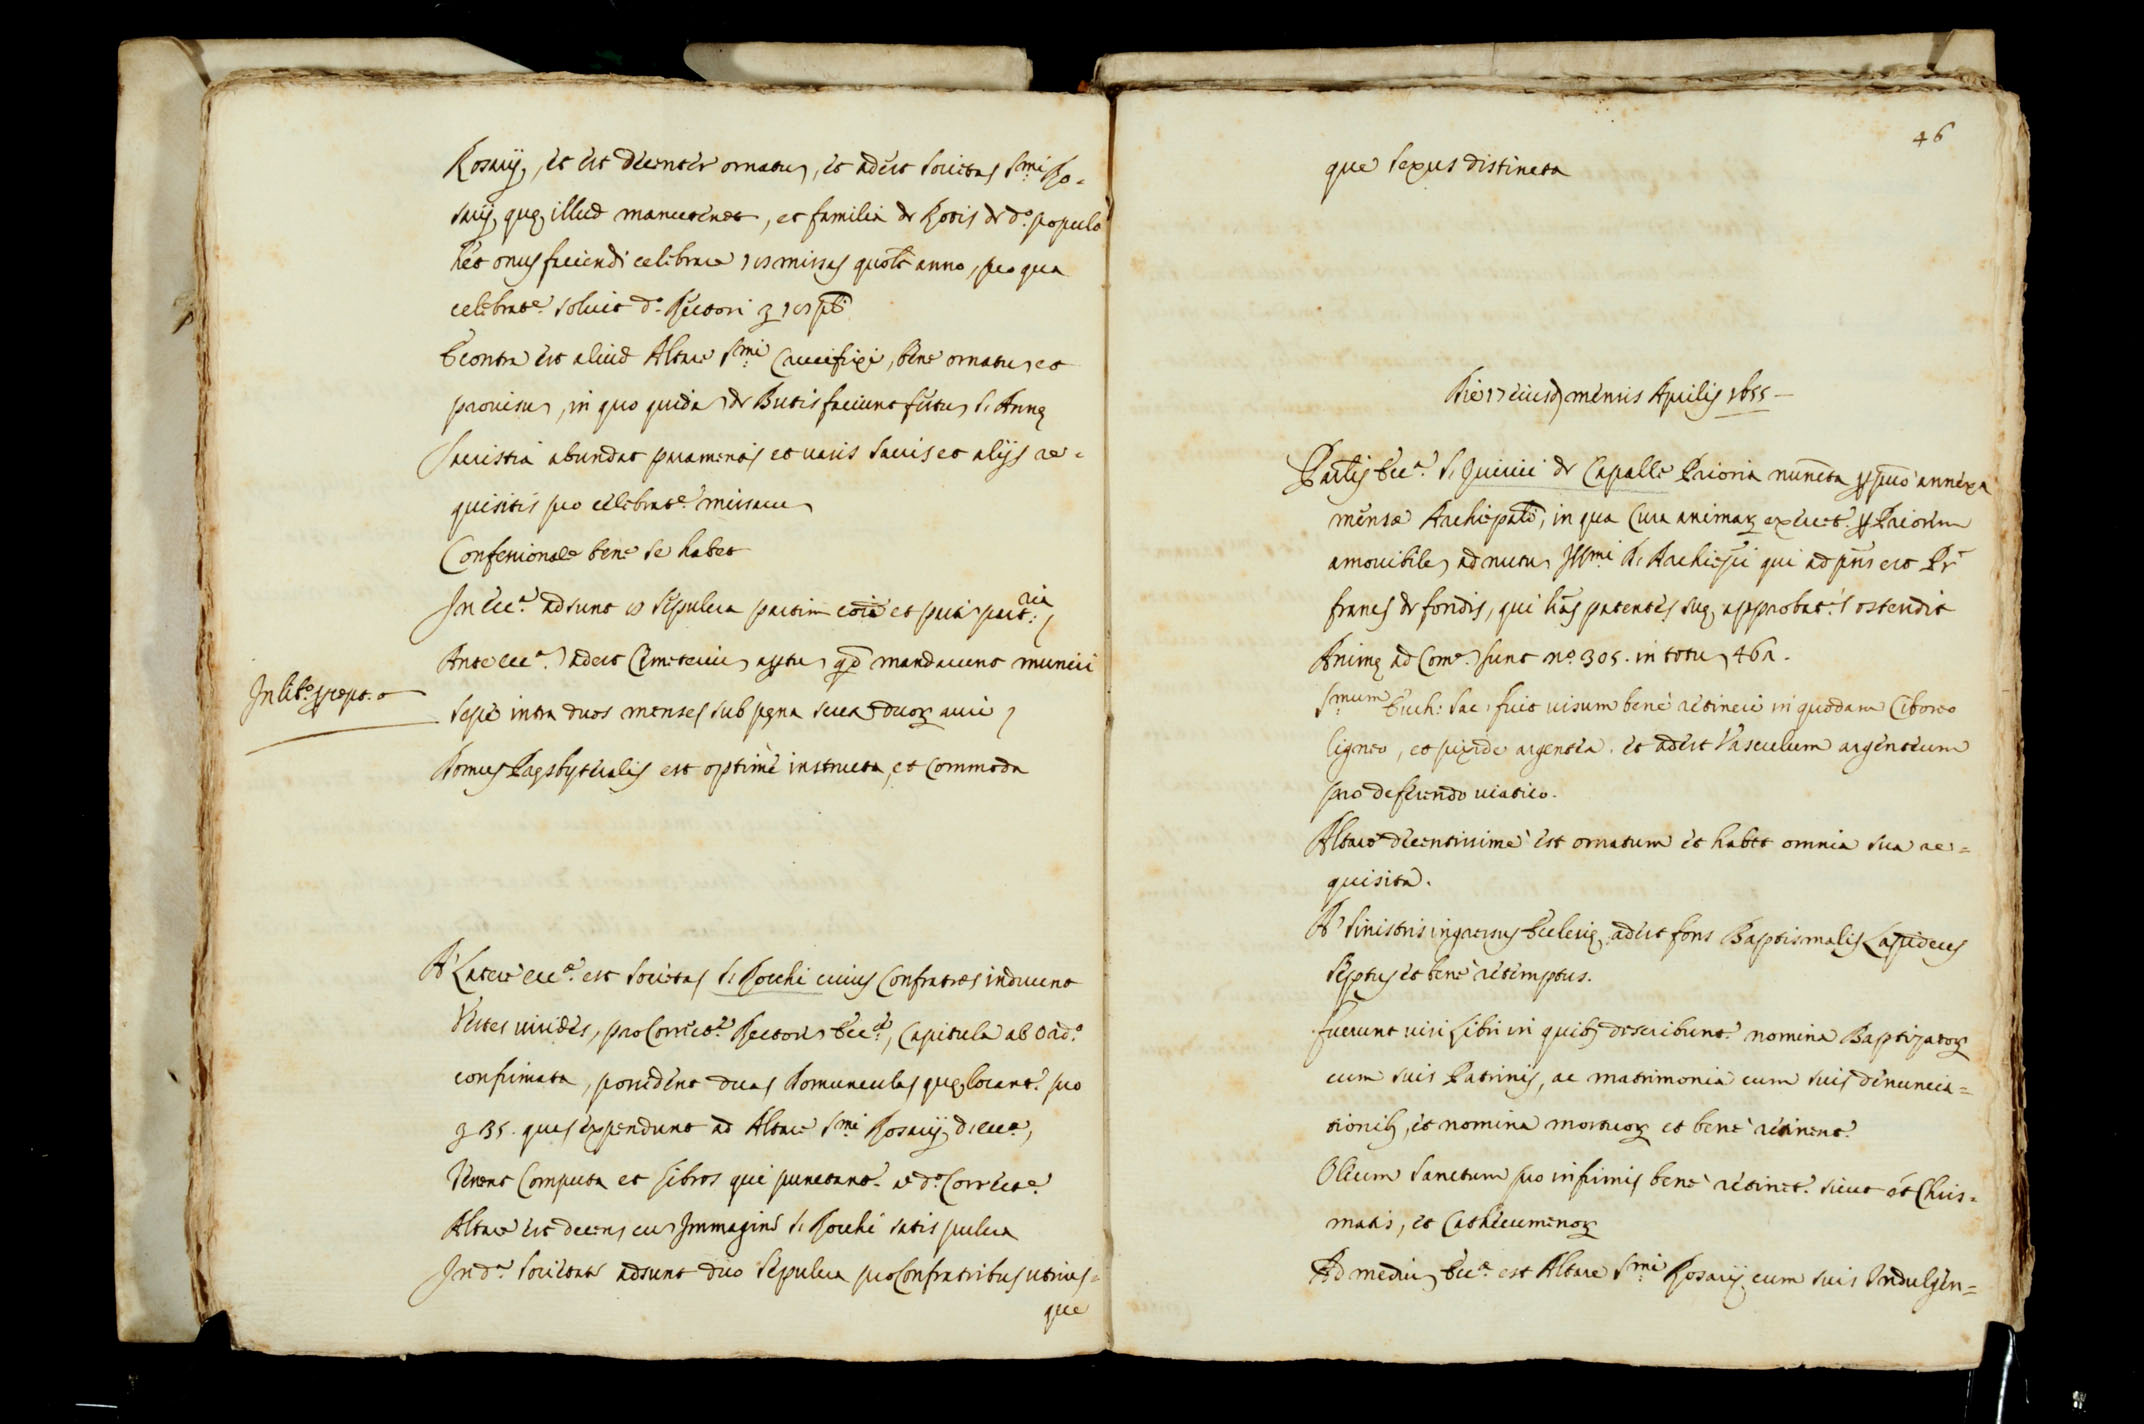 Rosarij, et est decenter ornatu, et adest Societas S.mi Ro-
sarij quę illud manutenet, et familia de Rotis de d.o populo
hét onus faciendi celebrare missas quolt anno, pro qua
celebrat.e soluit d.o Rectori
Econtra est aliud Altare S.mi Crucifixi, bene ornatu, et
prouisu, in quo quida de Butis faciunt festu S. Annę
Sacristia abundat paramentis et uasis sacris et alijs re-
quisitis pro celebrat.e missaru
Confessionale bene se habet
In ecc.a adsunt 10 Sepulcra partim coia et parti part:ria
Ante ecc.a adest Cimeteriu aptu qd mandarunt muniri
In lib.o
sepe intra duos menses sub pęna scut. duor. auri
Domus Pręsbyteralis est optimè instructa, et commoda
A' Latere ecc.e est Societas S. Rocchi cuius Confratres induunt
Vestes uirides, pro Correct.e Rectore Ecc.e, Capitula ab Ord.o
confirmata, possident duas Domunculas quę locant.r pro
35. quas expendunt ad Altare S.mi Rosarij d. ecc.e,
Tenent Computa et libros qui punctant.r a d.o Correct.e
Altare est decens cu Immagine S. Rocchi satis pulcra
In d.a Societate adsunt duo Sepulcra pro Confratribus utrius-
que
46
que sexus distincta
Die 17 eiusd mensis Aprilis 1655
Parlis Ecc.a S. Quirici de Capalle Prioria nuncta ppuò annexa
mensæ Archiepali, in qua Cura animar. exercet.r p Priorem
amouibile ad nutu Ill.mi D. Archiepi qui ad pns est Pr
Franc.s de Fondis, qui lras patentes suę approbat.s ostendit
Animę ad Com.e sunt n.o 305. in totu 462.
S.mum Euch: Sac. fuit uisum bene retineri in quodam Ciborio
ligneo, et pixide argentea. et adest Vasculum argenteum
pro deferendo uiatico.
Altare decentissime est ornatum et habet omnia sua re-
quisita.
A' sinistris ingressus Ecclesię adest fons Baptismalis Lapideus
septus et bene retemptus.
fuerunt uisi Libri in quib; describunt.r nomina Baptizator.
cum suis Patrinis, ac matrimonia cum suis denuncia-
tionib, et nomina mortuor. et bene retinent.r
Oleum Sanctum pro infirmis bene retinet.r sicut et Chris-
matis, et Cathecumenor.
Ad mediu Ecc.e est Altare S.mi Rosarij cum suis Indulgen-